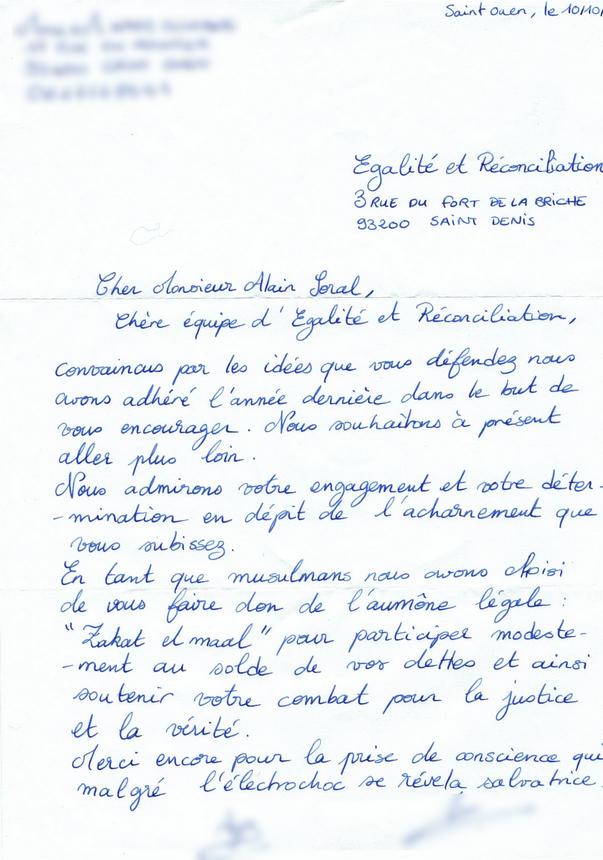 Saint Ouen, le 10/10/
Egalité et Réconciliation
3 RUE DU FORT DE LA BRICHE
93200 SAINT DENIS
Cher Monsieur Alain Soral,
Chère équipe d'Egalité et Réconciliation,
convaincus par les idées que vous défendez nous
avons adhéré l'année dernière dans le but de
vous encourager. Nous souhaitons à présent
aller plus loin.
Nous admirons votre engagement et votre déter-
-mination en dépit de l'acharnement que
vous subissez.
En tant que musulmans nous avons choisi
de vous faire don de l'aumône légale :
"Zakat el maal" pour participer modeste-
-ment au solde de vos dettes et ainsi
soutenir votre combat pour la justice
et la vérité.
Merci encore pour la prise de conscience qui
malgré l'électrochoc se révela salvatrice.